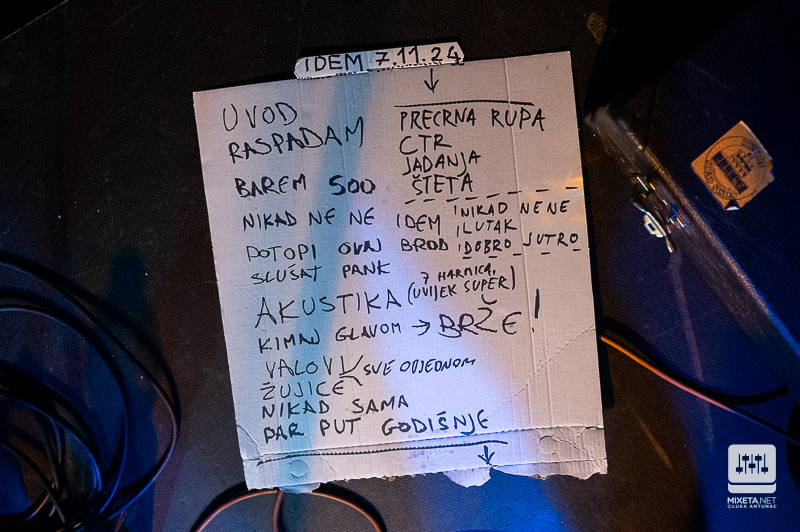 IDEM 7.11.24
UVOD
RASPADAM
BAREM 500
NIKAD NE NE IDEM
POTOPI OVAJ BROD
SLUŠAT PANK
AKUSTIKA (7 HARMICA, UVIJEK SUPER)
KIMAN GLAVOM → BRŽE!
VALOVI
ŽUJICE
SVE ODJEDNOM
NIKAD SAMA
PAR PUT GODIŠNJE
PRECRNA RUPA
CTR
JADANJA
ŠTETA
NIKAD NE NE
LUTAK
DOBRO JUTRO
MIXETA.NET
©LUKA ANTUNAC